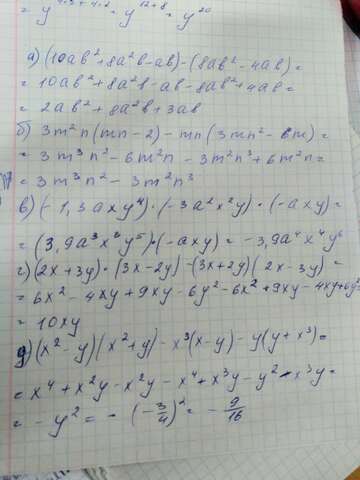 = y^{4·3+4·2} = y^{12+8} = y^{20}
а) (10ab²+8a²b-ab)-(8ab²-4ab)=
= 10ab²+8a²b-ab-8ab²+4ab=
= 2ab²+8a²b+3ab
б) 3m²n(mn-2)-mn(3mn²-6m)=
= 3m³n²-6m²n-3m²n³+6m²n=
= 3m³n²-3m²n³
в) (-1,3axy⁴)·(-3a²x²y)·(-axy)=
= (3,9a³x³y⁵)·(-axy)=-3,9a⁴x⁴y⁶
г) (2x+3y)·(3x-2y)-(3x+2y)(2x-3y)=
= 6x²-4xy+9xy-6y²-6x²+9xy-4xy+6y²=
= 10xy
д) (x²-y)(x²+y)-x³(x-y)-y(y+x³)=
= x⁴+x²y-x²y-x⁴+x³y-y²-x³y=
= -y² = -(-3/4)² = -9/16